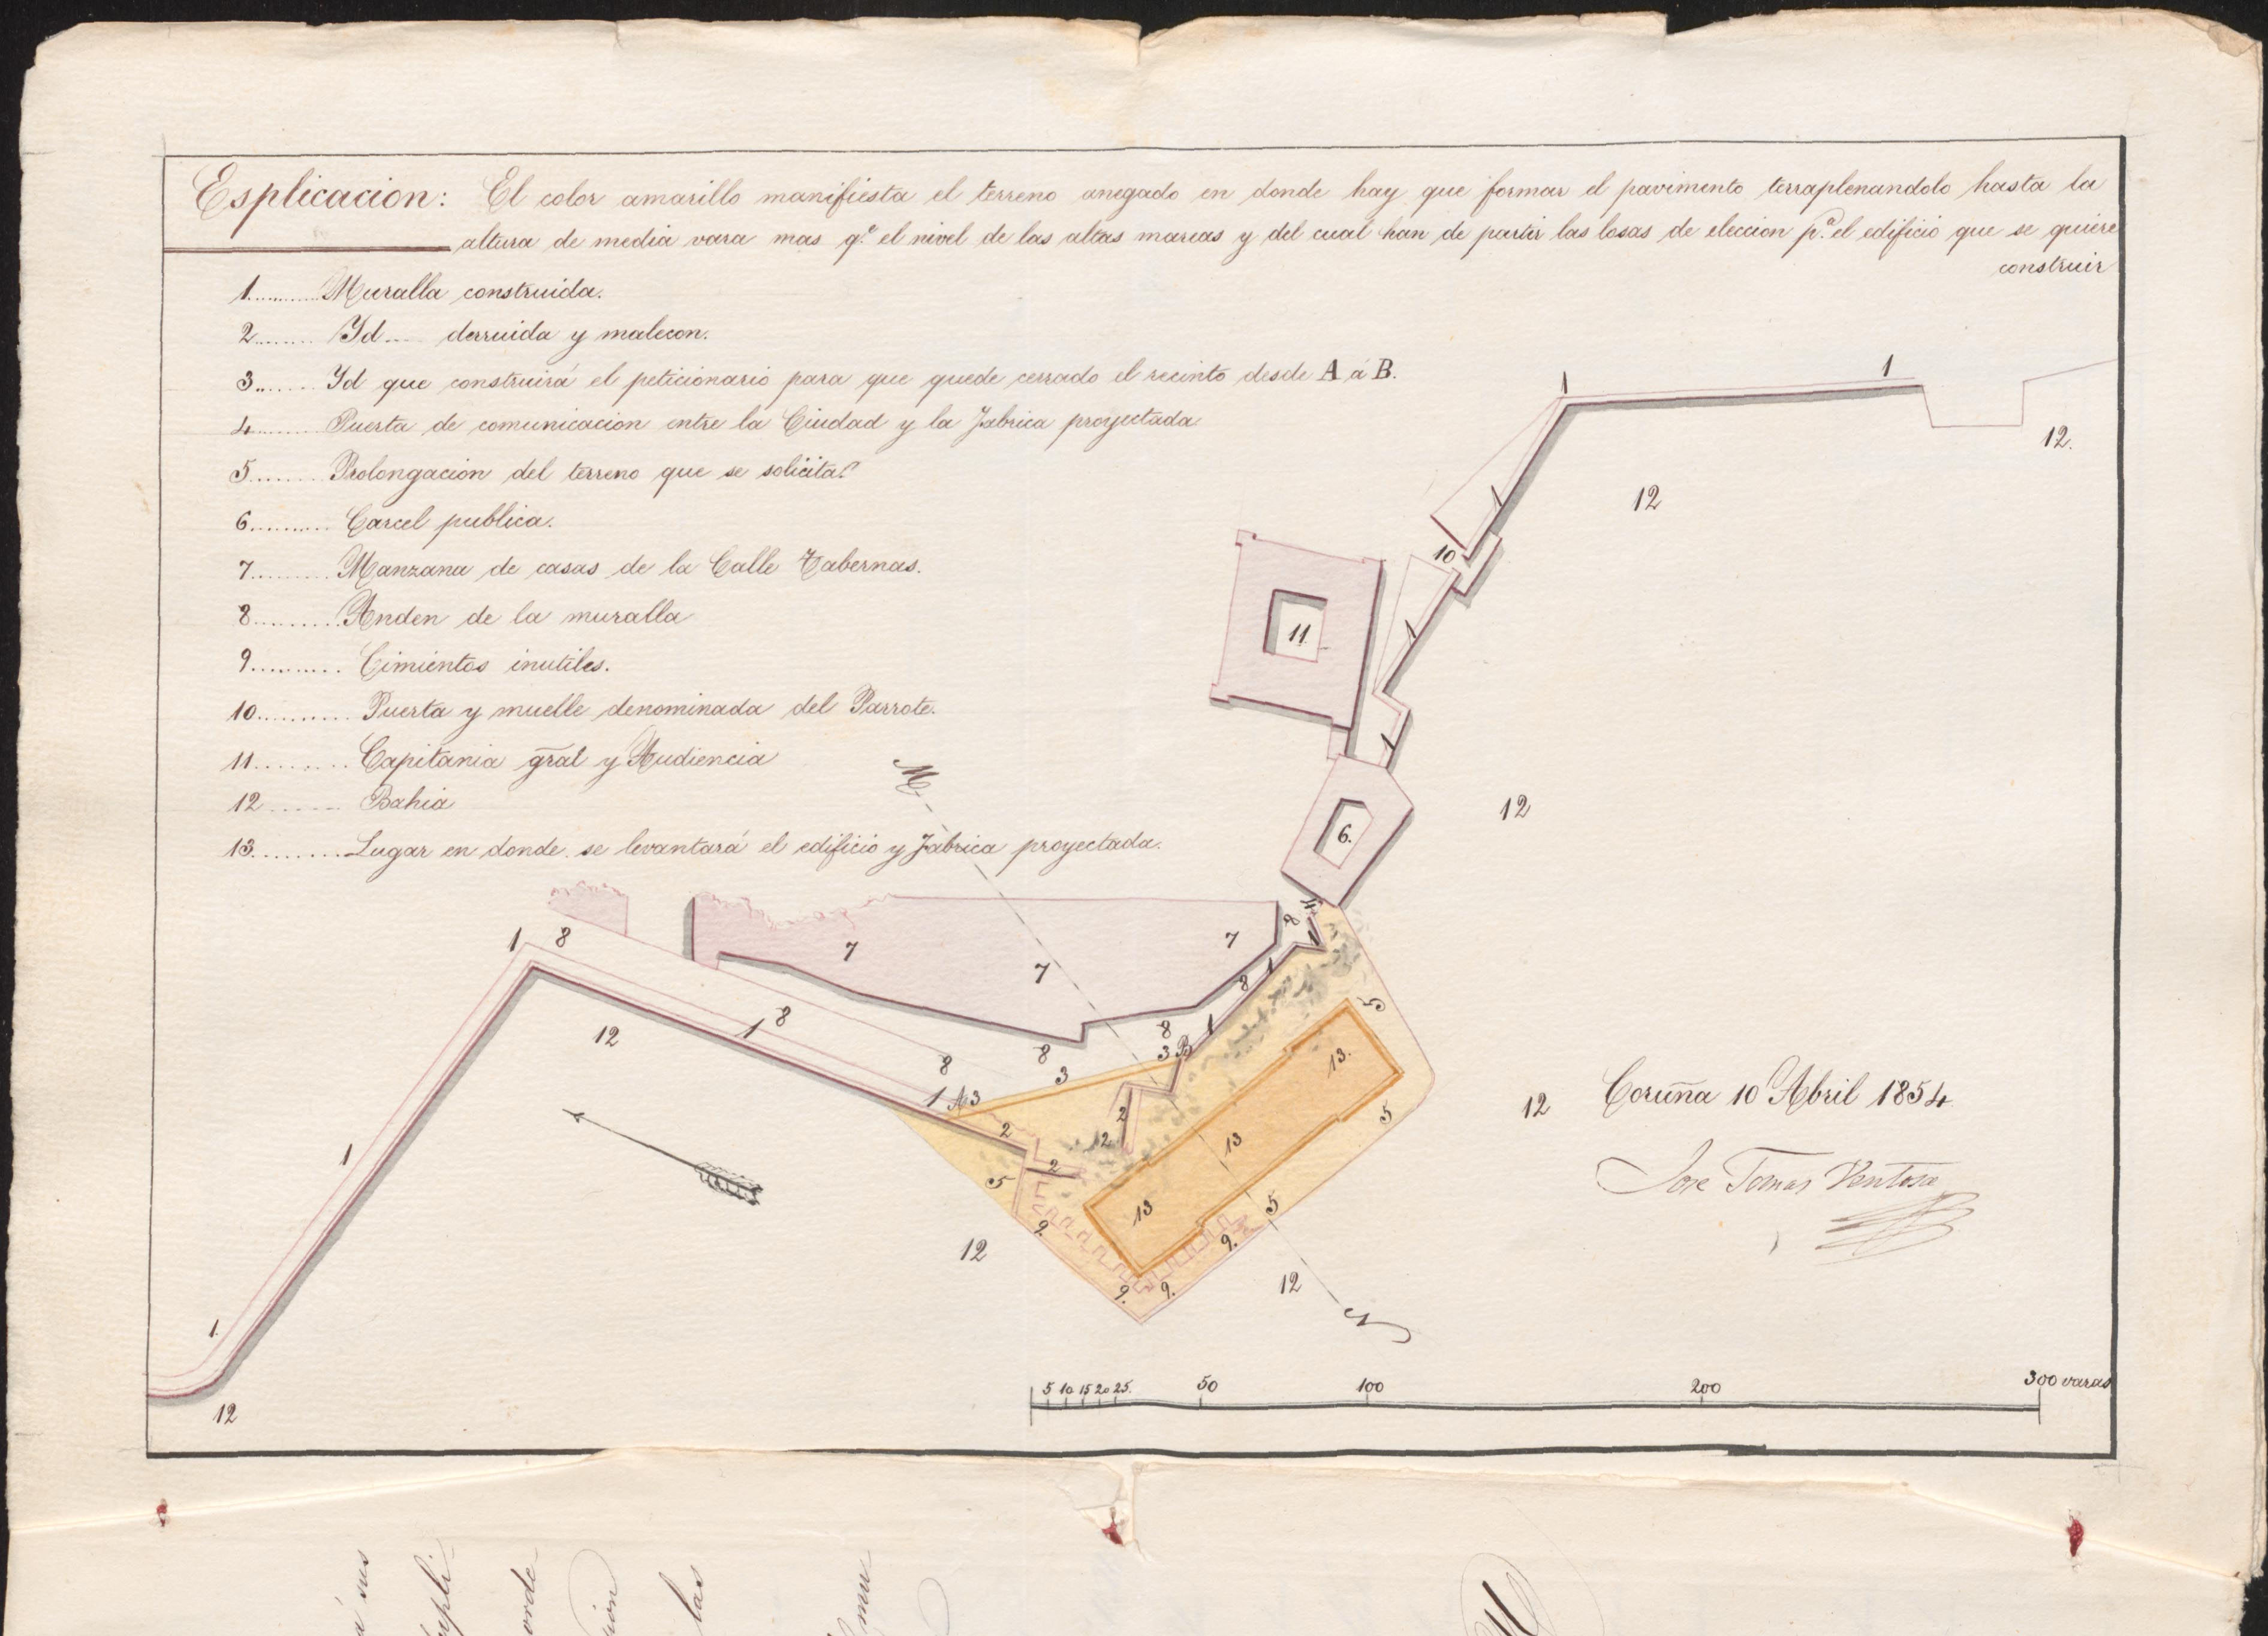 Esplicacion: El color amarillo manifiesta el terreno anegado en donde hay que formar el pavimento terraplenandolo hasta la
altura de media vara mas q.e el nivel de las altas mareas y del cual han de partir las losas de eleccion p.a el edificio que se quiere
construir
1.......... Muralla construida.
2........ Yd.... derruida y malecon.
3........ Yd que construirá el peticionario para que quede cerrado el recinto desde A á B.
4........ Puerta de comunicacion entre la Ciudad y la Fabrica proyectada
5........ Prolongacion del terreno que se solicita
6......... Carcel publica.
7......... Manzana de casas de la Calle Tabernas.
8......... Anden de la muralla
9.......... Cimientos inutiles.
10.......... Puerta y muelle denominada del Parrote.
11......... Capitania gral y Audiencia
12....... Bahia
13......... Lugar en donde se levantará el edificio y Fabrica proyectada.
1 1
12.
1 12
10
11. 1
1
M
12
6.
4
8 1
1 8 7 7
7 8 1
5
12 1 8 8 1
8 3 B
8 3 13.
1 A 3
12 Coruña 10 Abril 1854
2 2 5
2 13
1 2
5 Jose Tomas Ventosa
13 5
9. 9.
12
9. 9. 12
1. N
5 10 15 20 25. 50 100 200 300 varas
12
á sus
orde
las